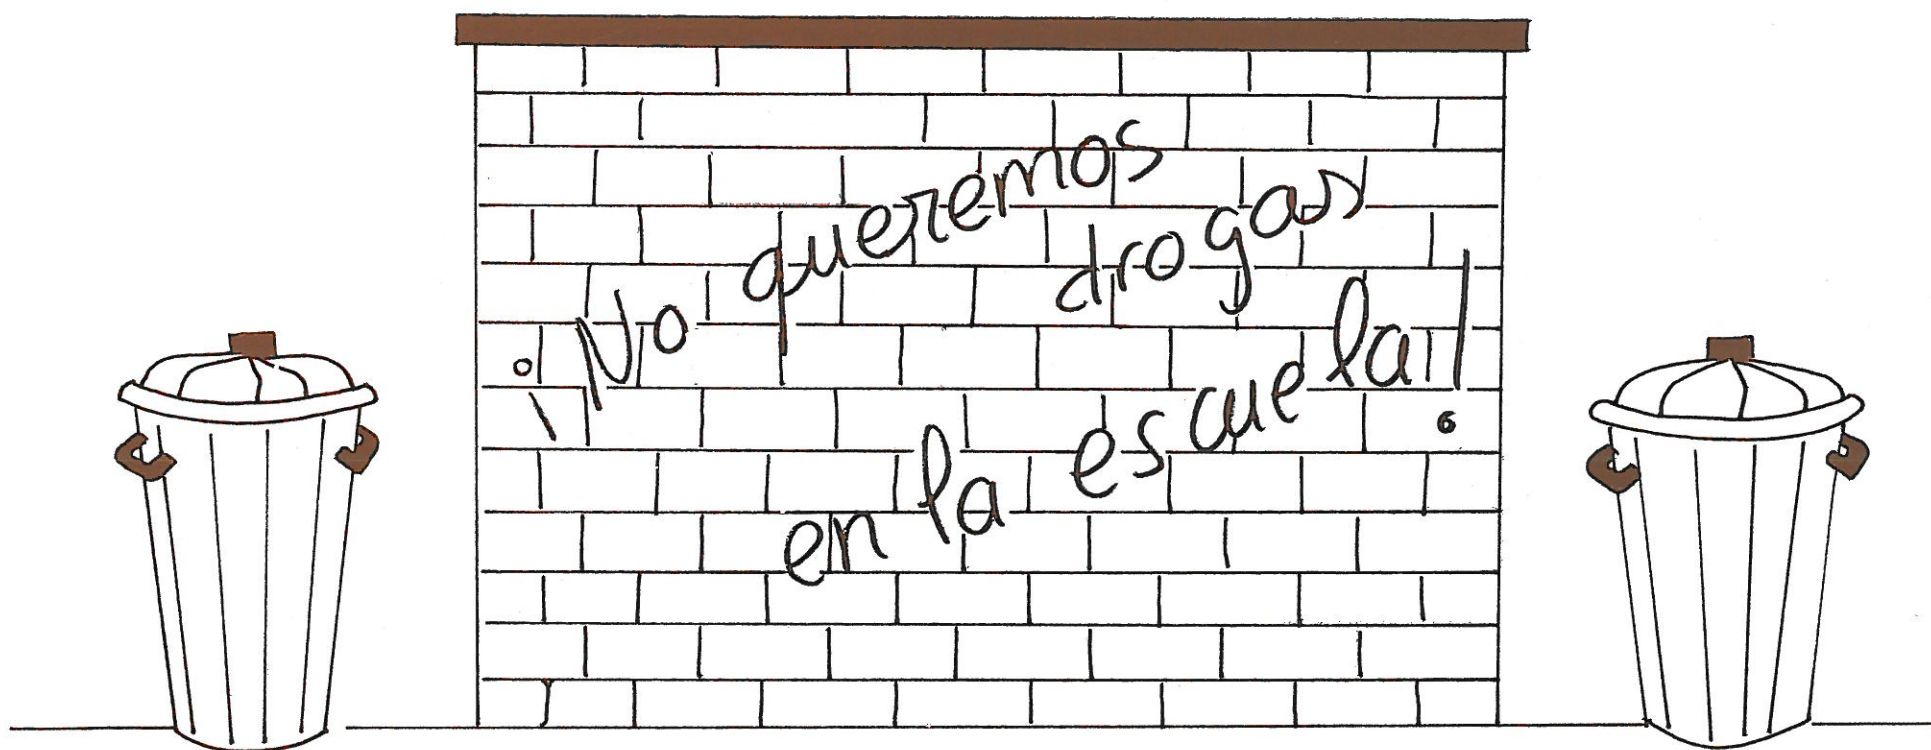 ¡No queremos
drogas
en la escuela!